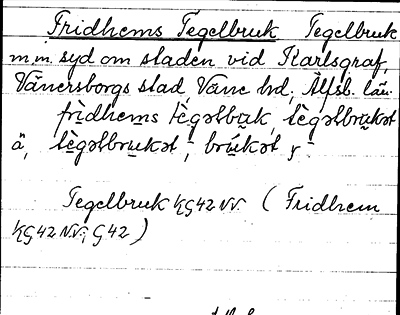 Fridhems Tegelbruk Tegelbruk
m.m. syd om staden vid Karlsgraf
Vänersborgs stad, Väne hd; Älfsb. län.
frìdhems tègəlbruk, tègəlbrukət
ä, tègəlbrukət; brúkət
Tegelbruk KG42NV (Fridhem
KG42NV; G42)